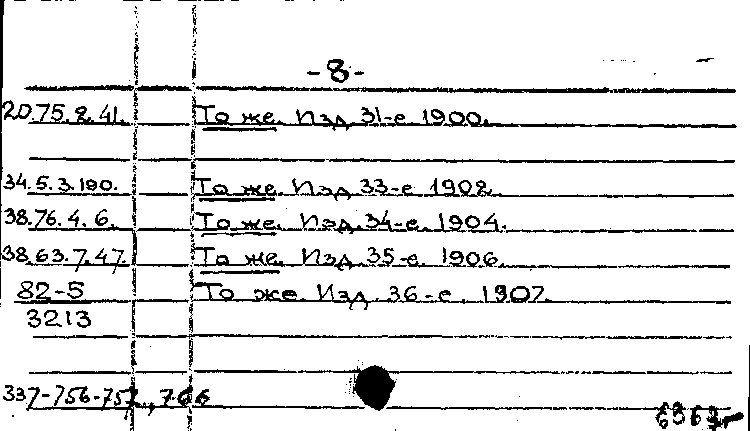 -8-
20.75.2.41. То же. Изд. 31-е. 1900.
34.5.3.190. То же. Изд. 33-е. 1902.
38.76.4.6. То же. Изд. 34-е. 1904.
38.63.7.47. То же. Изд. 35-е. 1906.
82-5 То же. Изд. 36-е. 1907.
3213
337-756-757, 766